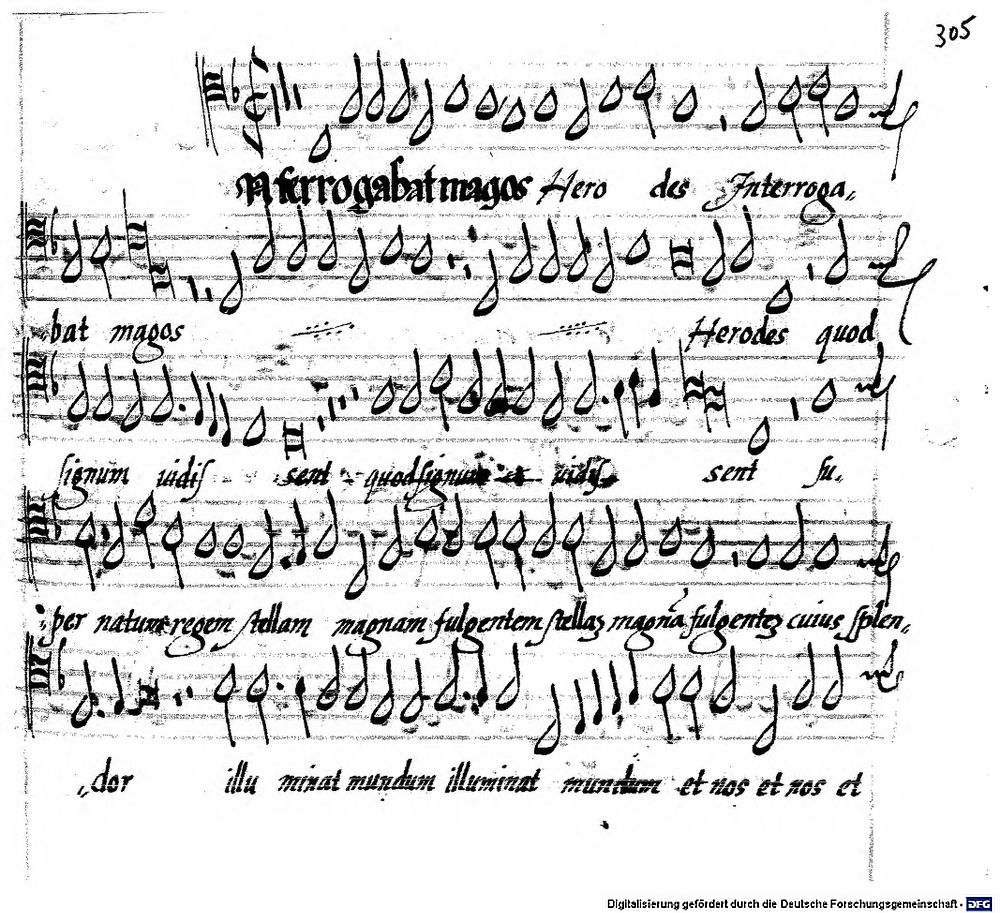 305
Nterrogabat magos Hero des Interroga„
„bat magos Herodes quod
signum vidis sent quod signum vidis sent su„
„per natum regem stellam magnam fulgentem stellaʒ magnā fulgenteʒ cuius splen„
„dor illu minat mundum illuminat mundum et nos et nos et
Digitalisierung gefördert durch die Deutsche Forschungsgemeinschaft - DFG